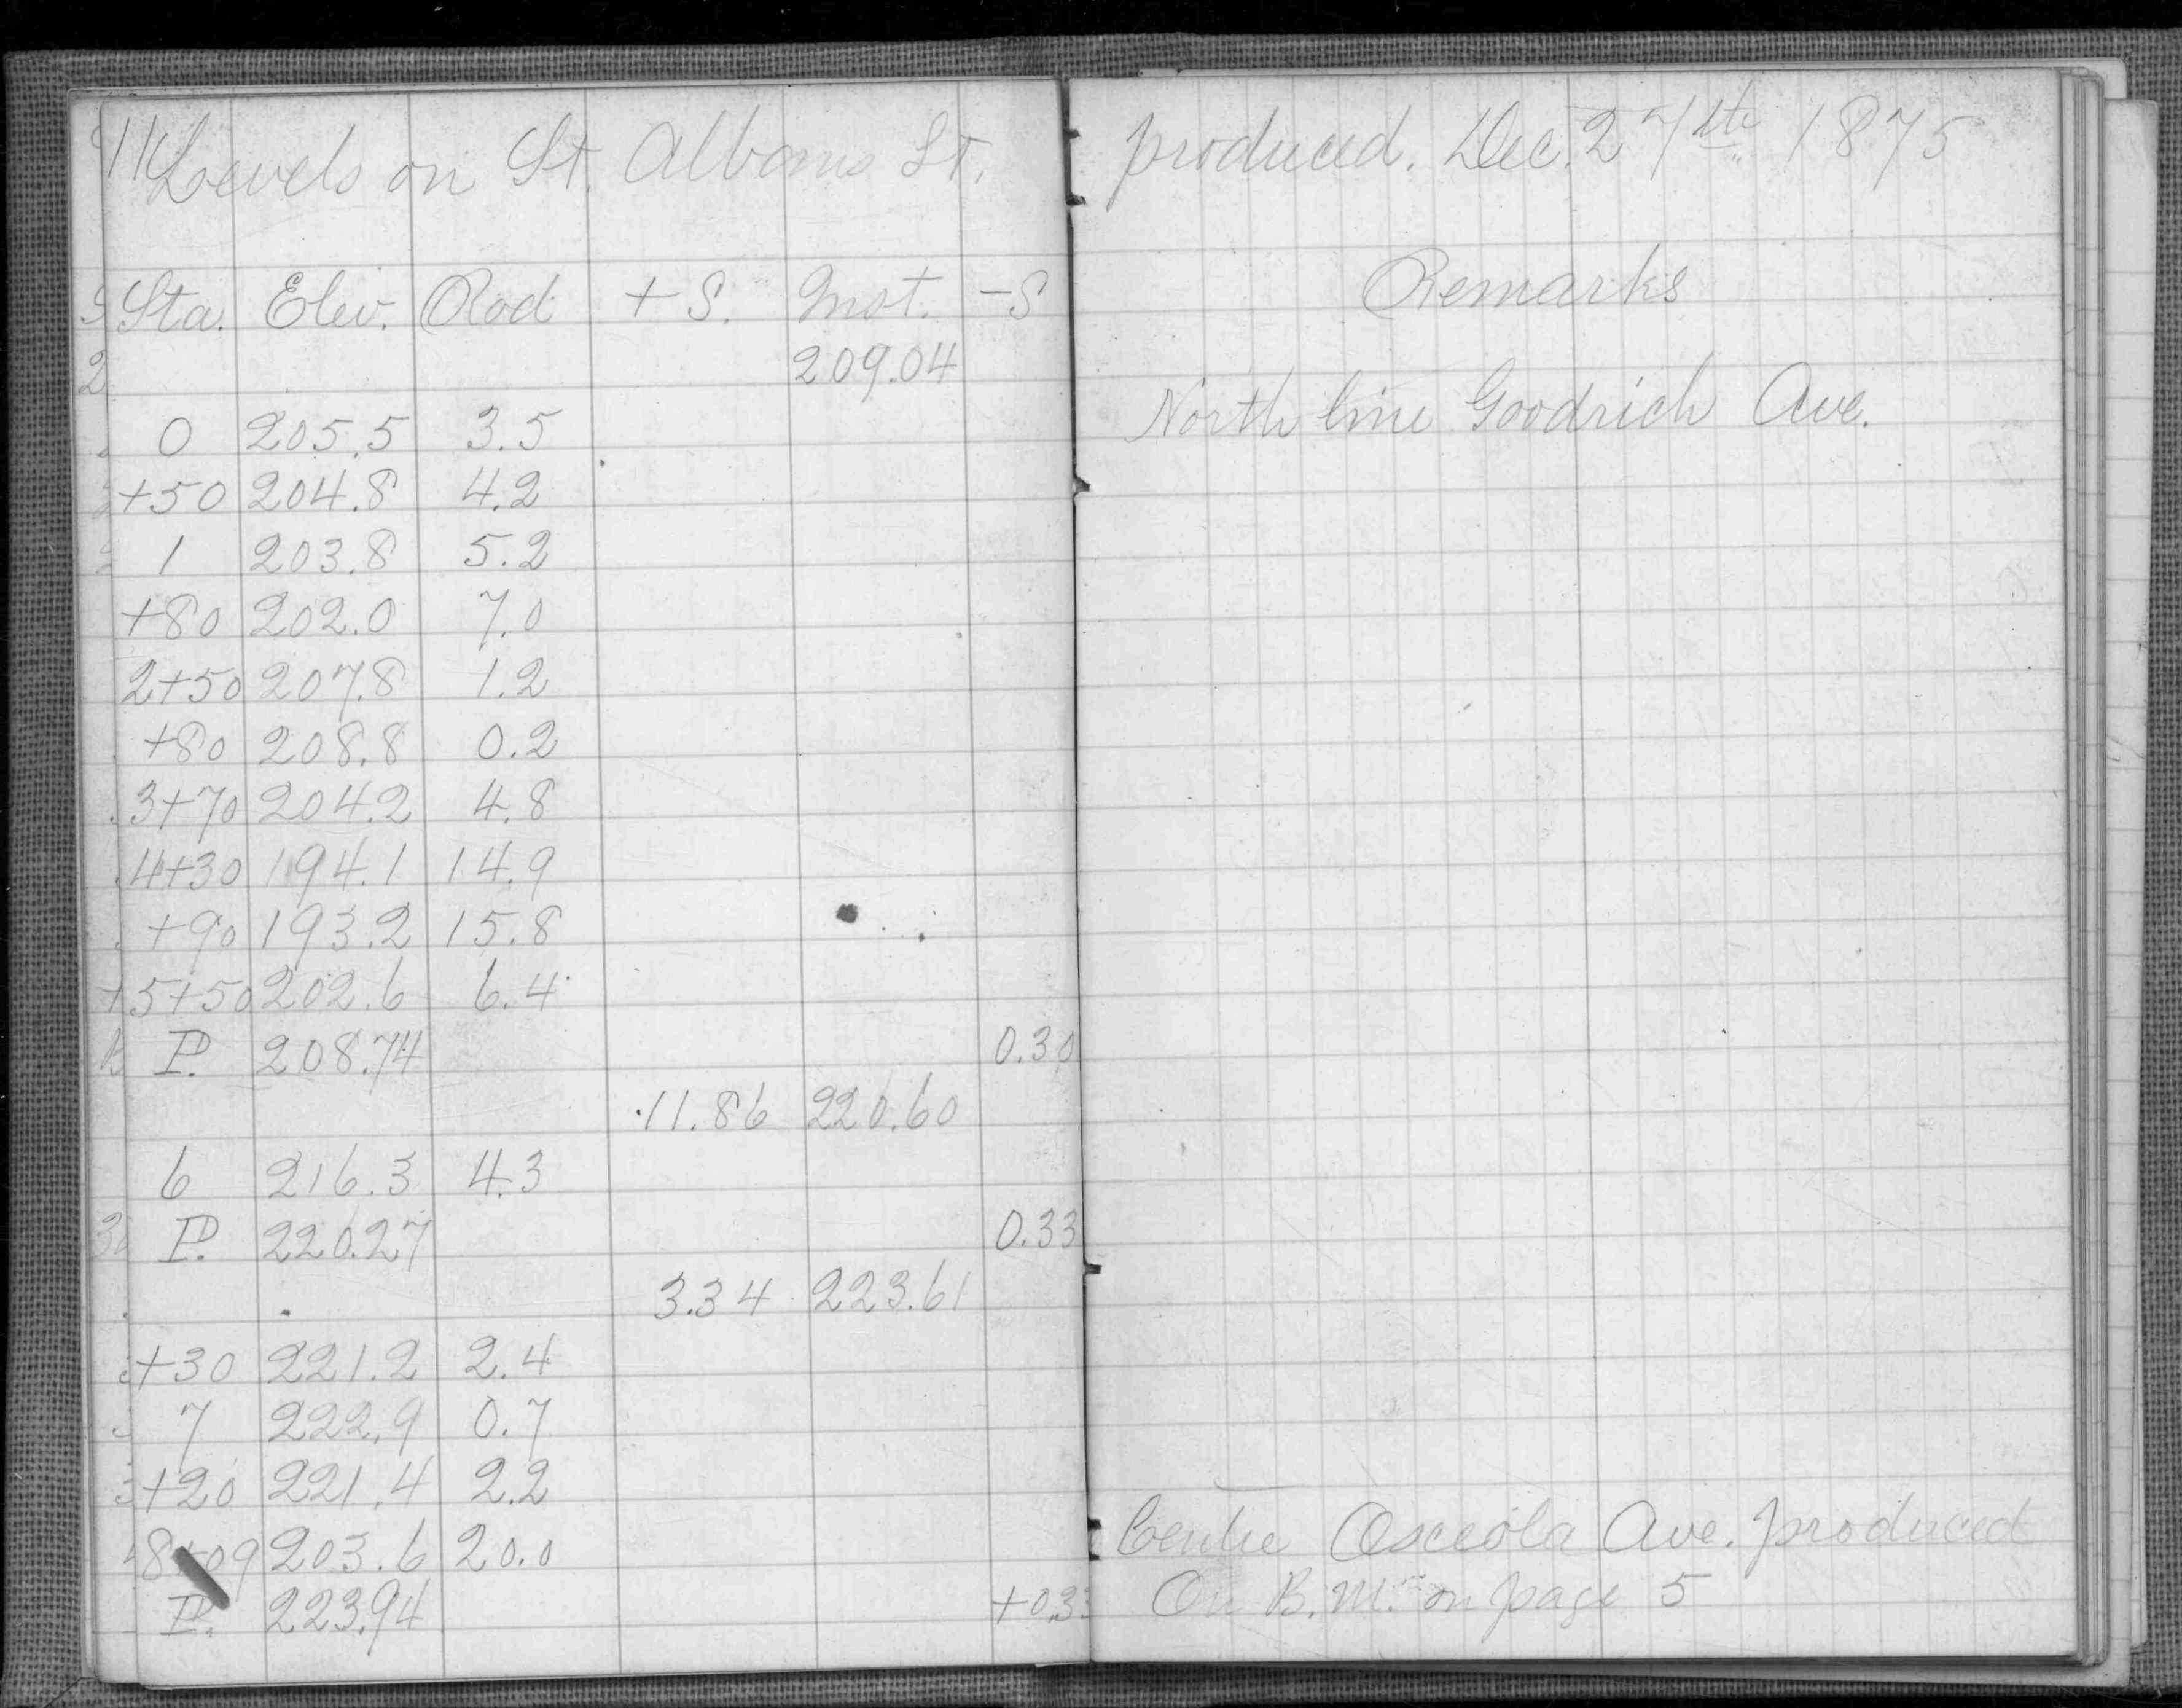 11 Levels on St. Albans St. produced. Dec. 27th 1875
Sta. Elev. Rod + S. Inst. -S Remarks
209.04
0 205.5 3.5 North line Goodrich Ave.
+50 204.8 4.2
1 203.8 5.2
+80 202.0 7.0
2+50 207.8 1.2
+80 208.8 0.2
3+70 204.2 4.8
4+30 194.1 14.9
+90 193.2 15.8
5+50 202.6 6.4
P. 208.74 0.30
11.86 220.60
6 216.3 4.3
P. 220.27 0.33
3.34 223.61
+30 221.2 2.4
7 222.9 0.7
+20 221.4 2.2
8+09 203.6 20.0 Centre Osceola Ave. produced
P. 223.94 +0.33 On B.M. on page 5